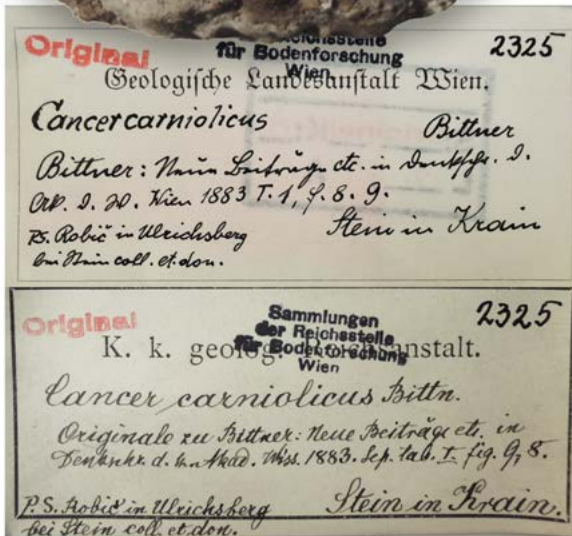 Original
Reichsstelle
für Bodenforschung
Wien
2325
Geologische Landesanstalt Wien.
Cancer carniolicus Bittner
Bittner: Neue Beiträge etc. in Denkschr. d.
Ak. d. W. Wien 1883 T. 1, f. 8. 9.
Stein in Krain
P.S. Robič in Ulrichsberg
bei Stein coll. et. don.
Original
Sammlungen
der Reichsstelle
für Bodenforschung
Wien
2325
K. k. geolog. Reichsanstalt.
Cancer carniolicus Bittn.
Originale zu Bittner: Neue Beiträge etc. in
Denkschr. d. k. Akad. Wiss. 1883. Sep. tab. I. fig. 9, 8.
P. S. Robič in Ulrichsberg
bei Stein coll. et. don.
Stein in Krain.